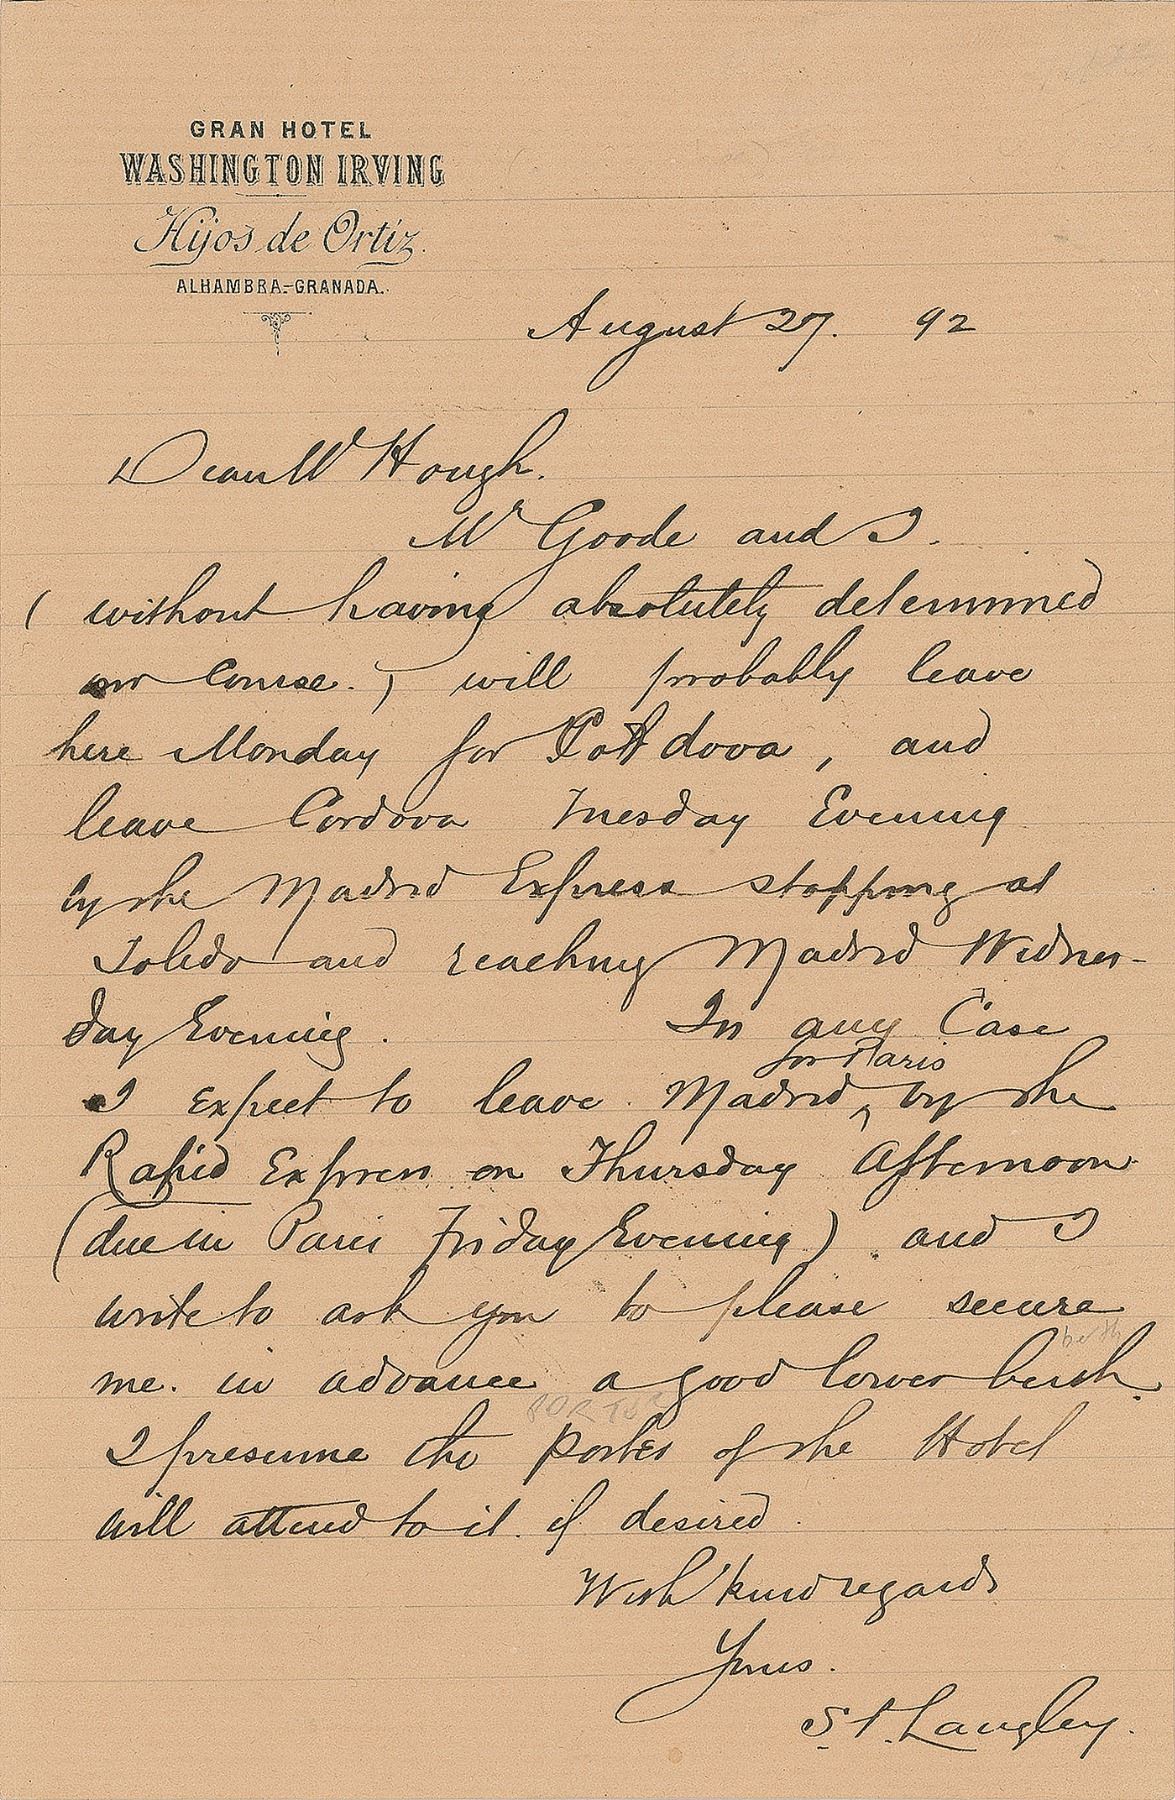 GRAN HOTEL
WASHINGTON IRVING
Hijos de Ortiz.
ALHAMBRA-GRANADA.
August 27. 92
Dear Mr Hough.
Mr Goode and I.
( without having absolutely determined
our course.) will probably leave
here Monday for Cordova, and
leave Cordova Tuesday Evening
by the Madrid Express stopping at
Toledo and reaching Madrid Wednes-
day Evening. In any Case
for Paris
I expect to leave Madrid ‸ by the
Rapid Express on Thursday Afternoon
(due in Paris Friday Evening) and I
write to ask you to please secure
berth
me. in advance a good lower berth.
PORTER
I presume the porter of the Hotel
will attend to it if desired.
With kind regards
Yours.
S. P. Langley.